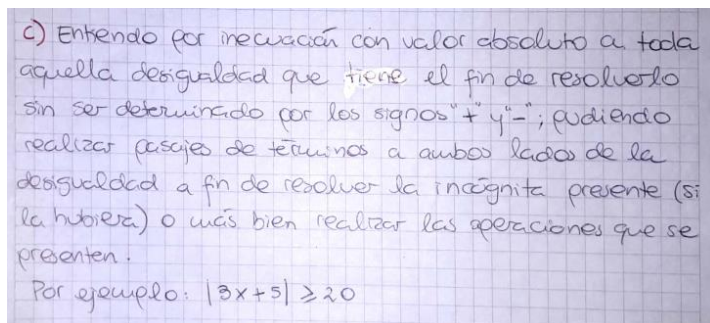 c) Entiendo por inecuación con valor absoluto a toda
aquella desigualdad que tiene el fin de resolverlo
sin ser determinado por los signos "+" y "-"; pudiendo
realizar pasajes de términos a ambos lados de la
desigualdad a fin de resolver la incógnita presente (si
la hubiera) o más bien realizar las operaciones que se
presenten.
Por ejemplo: |3x+5| ⩾ 20